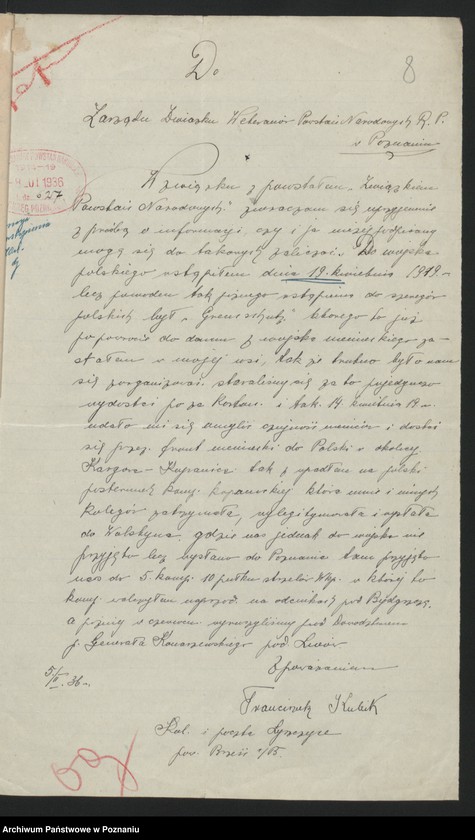 Do
8
Zarządu Związku Weteranów Powstań Narodowych R. P.
w Poznaniu
W związku z powstałem „Związkiem
Powstań Narodowych” zwracam się uprzejmie
z prośbą o informacji czy i ja niżej podpisany
mogą się do takowych zaliczać. Do wojska
polskiego wstąpiłem dnia 19. kwietnia 1919.
lecz powodem tak późnego wstąpienia do szeregów
polskich był „Grenschutz” którego to już
po powrocie do domu z wojska niemieckiego za-
stałem w mojej wsi, tak że trudno było nam
się zorganizować. staraliśmy się za to pojedynczo
wydostać po za kordon. i tak 14 kwietnia 19
udało mi się zmylić czujność niemców i dostać
się przez front niemiecki do Polski w okolicy
Kargowa - Kopanica tak z wpadłem na polski
posterunek komp. kopanickiej która mnie i innych
kolegów zatrzymała, wylegitymowała i wysłała
do Wolsztyna, gdzie nas jednak do wojska nie
przyjęto lecz wysłano do Poznania tam przyjęto
nas do 5. komp. 10 pułku strzelców Wlkp. w której to
komp. walczyłem naprzód na odcinkach pod Bydgoszczą
a później w czerwcu wyruszyliśmy pod dowództwem
p. Generała Konarzewskiego pod Lwów
Z poważaniem
5/II. 36 r.
Franciszek Kubik
Kol. i poczta
pow.
Archiwum Państwowe w Poznaniu
Archiwum Państwowe w Poznaniu